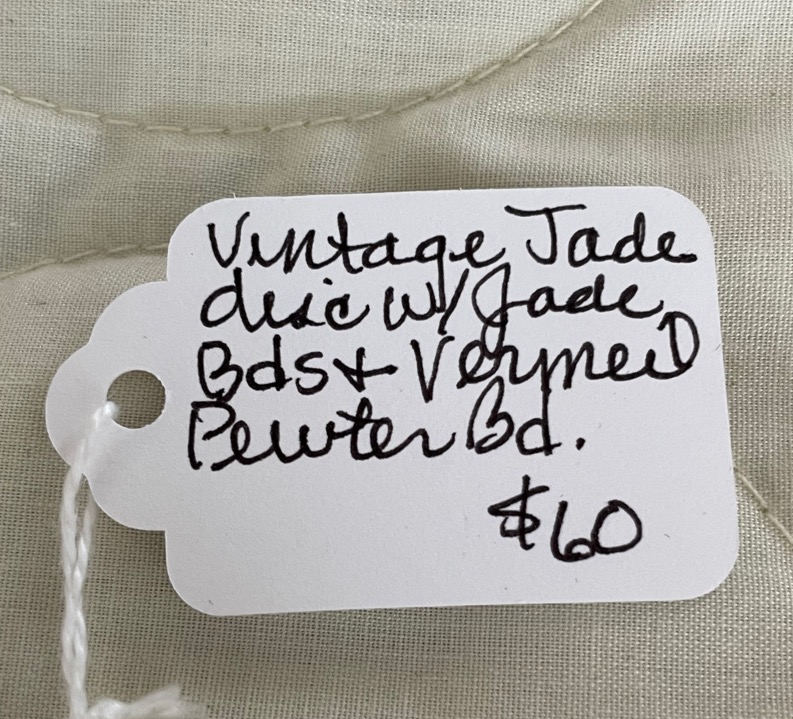 Vintage Jade
disc w/ Jade
Bds + Vermeil
Pewter Bd.
$60